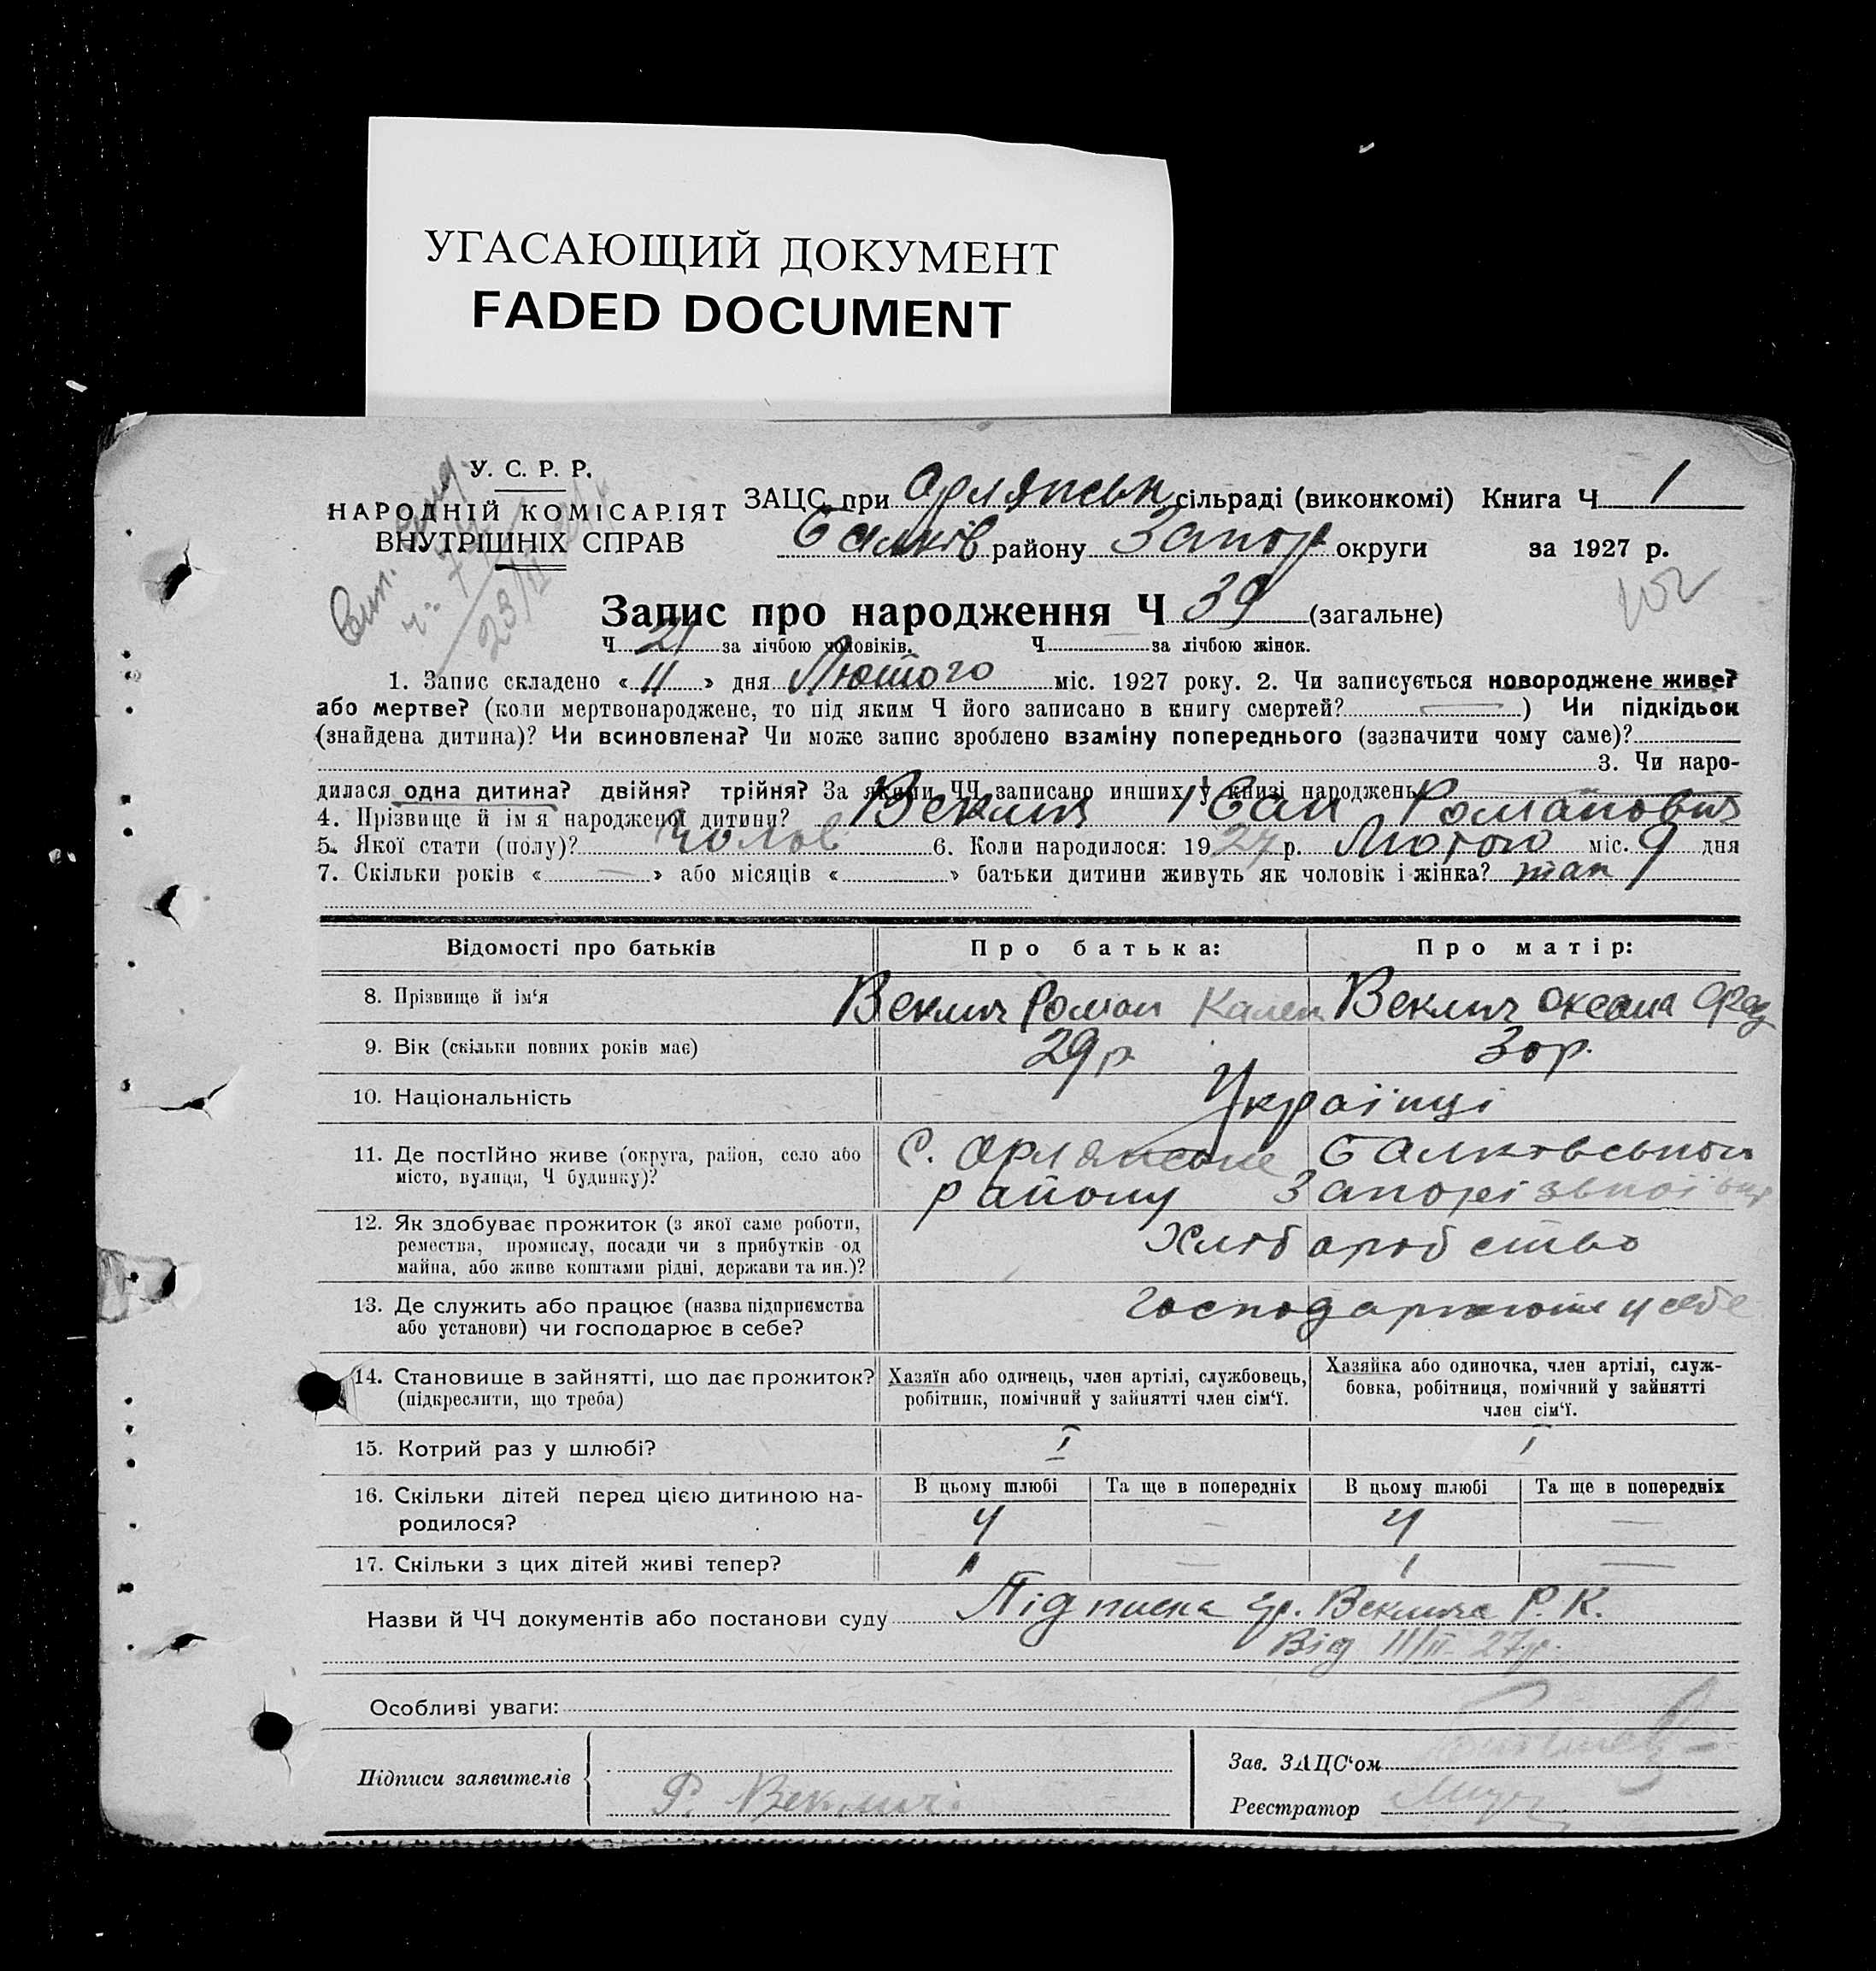 УГАСАЮЩИЙ ДОКУМЕНТ
FADED DOCUMENT
У. С. Р. Р.
НАРОДНІЙ КОМІСАРІЯТ
ВНУТРІШНІХ СПРАВ
ЗАЦС при Орлянськ сільраді (виконкомі) Книга Ч 1
Балків району Запор округи за 1927 р.
Вип.
ч. 
23/II
Запис про народження Ч 39 (загальне)
Ч 21 за лічбою чоловіків. Ч за лічбою жінок.
1. Запис складено « 11 » дня Лютого міс. 1927 року. 2. Чи записується новороджене живе?
або мертве? (коли мертвонароджене, то під яким Ч його записано в книгу смертей? — ) Чи підкідьок
(знайдена дитина)? Чи всиновлена? Чи може запис зроблено взаміну попереднього (зазначити чому саме)?
3. Чи наро-
дилася одна дитина? двійня? трійня? За якими ЧЧ записано инших у книзі народжень
4. Прізвище й ім'я народженої дитини? Веклич Іван Романович
5. Якої стати (полу)? Чолов 6. Коли народилося: 1927 р. Лютого міс. 9 дня
7. Скільки років « — » або місяців « » батьки дитини живуть як чоловік і жінка? так
Відомості про батьків Про батька: Про матір:
8. Прізвище й ім‘я Веклич Роман Кален Веклич Оксана
9. Вік (скільки повних років має) 29 р. 30 р.
10. Національність Українці
11. Де постІйно живе (округа, район, село або
місто, вулиця, Ч будинку)?
С. Орлянське Балковського
району Запорізької окр
12. Як здобуває прожиток (з якої саме роботи,
ремества, промислу, посади чи з прибутків од
майна, або живе коштами рідні, держави та ин.)?
Хліборобство
13. Де служить або працює (назва підприємства
або установи) чи господарює в себе?
Господарюють у себе
14. Становище в зайнятті, що дає прожиток?
(підкреслити, що треба)
Хазяїн або одинець, член артілі, службовець,
робітник, помічний у зайнятті член сім‘ї.
Хазяйка або одиночка, член артілі, служ-
бовка, робітниця, помічний у зайнятті
член сім‘ї.
15. Котрий раз у шлюбі? I I
16. Скільки дітей перед цією дитиною на-
родилося?
В цьому шлюбі Та ще в попередніх В цьому шлюбі Та ще в попередніх
4 — 4 —
17. Скільки з цих дітей живі тепер? 1 — 1 —
Назви й ЧЧ документів або постанови суду Підписка гр. Веклича Р. К.
Від 11/II-27р.
Особливі уваги:
Підписи заявителів
Р. Веклич
Зав. ЗАЦС‘ом
Реєстратор